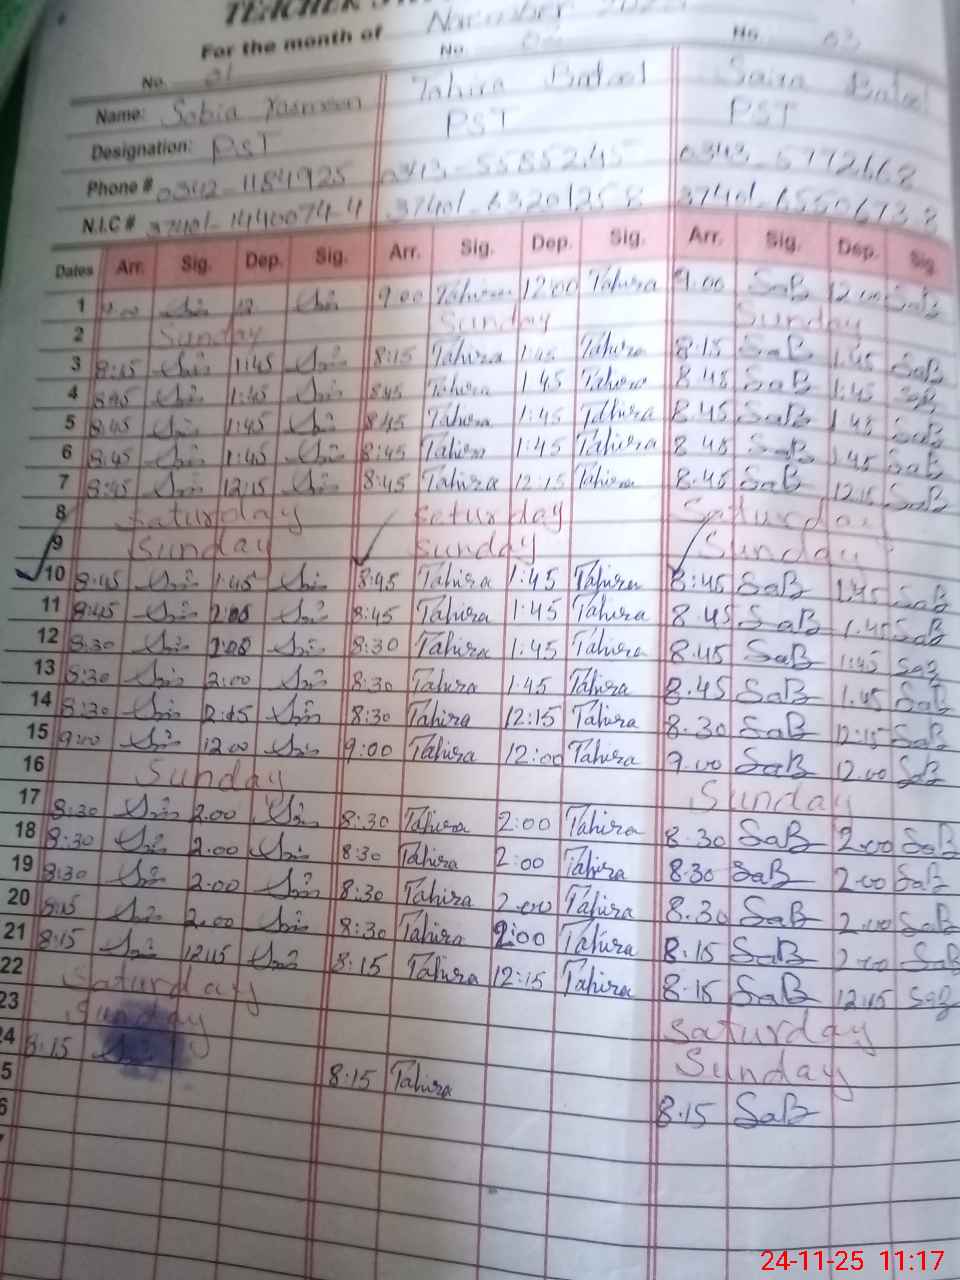 TEACHER
For the month of November
No. 01 No. 02 No. 03
Name: Sobia Yasmeen Tahira Batool Saira Batool
Designation: PST PST PST
Phone # 0342-1184925 0343-5585245 0343-5772668
N.I.C # 37401-1440074-4 37401-6320125 8 37401-6550673-8
Dates Arr. Sig. Dep. Sig. Arr. Sig. Dep. Sig. Arr. Sig. Dep. Sig.
1 9.00 12 9.00 Tahira 12:00 Tahira 9.00 SaB 12.00 SaB
2 Sunday Sunday Sunday
3 8:15 1:45 8:15 Tahira 1:45 Tahira 8.15 SaB 1.45 SaB
4 8:45 1:45 8:45 Tahira 1:45 Tahira 8.45 SaB 1.45 SaB
5 8:45 1:45 8:45 Tahira 1:45 Tahira 8.45 SaB 1.45 SaB
6 8:45 1:45 8:45 Tahira 1:45 Tahira 8.45 SaB 1.45 SaB
7 8:45 12:15 8:45 Tahira 12:15 Tahira 8.45 SaB 12.15 SaB
8 Saturday Saturday Saturday
9 Sunday Sunday Sunday
10 8:45 1:45 8:45 Tahira 1:45 Tahira 8:45 SaB 1.45 SaB
11 8:45 2:00 8:45 Tahira 1:45 Tahira 8.45 SaB 1.45 SaB
12 8:30 2:00 8:30 Tahira 1:45 Tahira 8.45 SaB 1:45 SaB
13 8:30 2:00 8:30 Tahira 1.45 Tahira 8.45 SaB 1.45 SaB
14 8:30 8:30 Tahira 12:15 Tahira 8.30 SaB 12:15 SaB
15 9:00 12.00 9:00 Tahira 12:00 Tahira 9.00 SaB 12.00 SaB
16 Sunday Sunday
17 8:30 2.00 8:30 Tahira 2:00 Tahira 8.30 SaB 2.00 SaB
18 8:30 2.00 8:30 Tahira 2:00 Tahira 8.30 SaB 2.00 SaB
19 8:30 2.00 8:30 Tahira 2.00 Tahira 8.30 SaB 2.00 SaB
20 8:15 2.00 8:30 Tahira 2:00 Tahira 8.15 SaB 2.00 SaB
21 8:15 12:15 8:15 Tahira 12:15 Tahira 8.15 SaB 12.15 SaB
22 Saturday Saturday
23 Sunday Sunday
24 8:15 8:15 Tahira 8.15 SaB
5
6
24-11-25 11:17